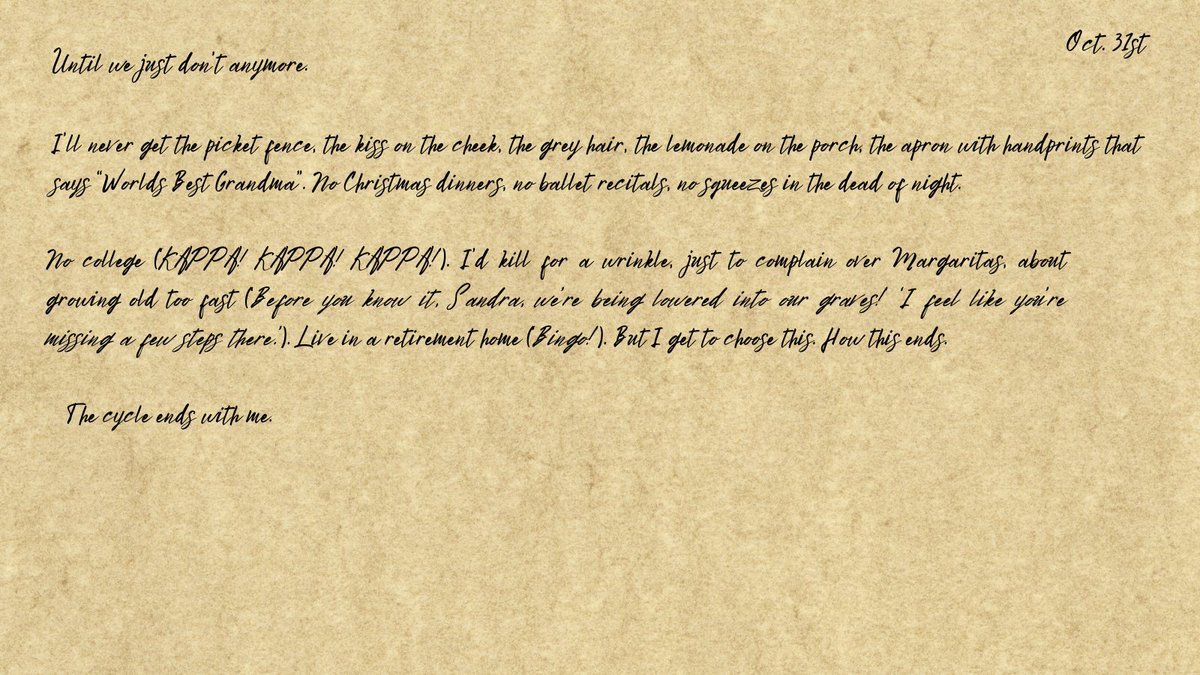 Oct. 31st
Until we just don't anymore.
I'll never get the picket fence, the kiss on the cheek, the grey hair, the lemonade on the porch, the apron with handprints that
says "Worlds Best Grandma". No Christmas dinners, no ballet recitals, no squeezes in the dead of night.
No college (KAPPA! KAPPA! KAPPA!). I'd kill for a wrinkle, just to complain over Margaritas, about
growing old too fast (Before you know it, Sandra, we're being lowered into our graves! 'I feel like you're
missing a few steps there.'). Live in a retirement home (Bingo!). But I get to choose this. How this ends.
The cycle ends with me.